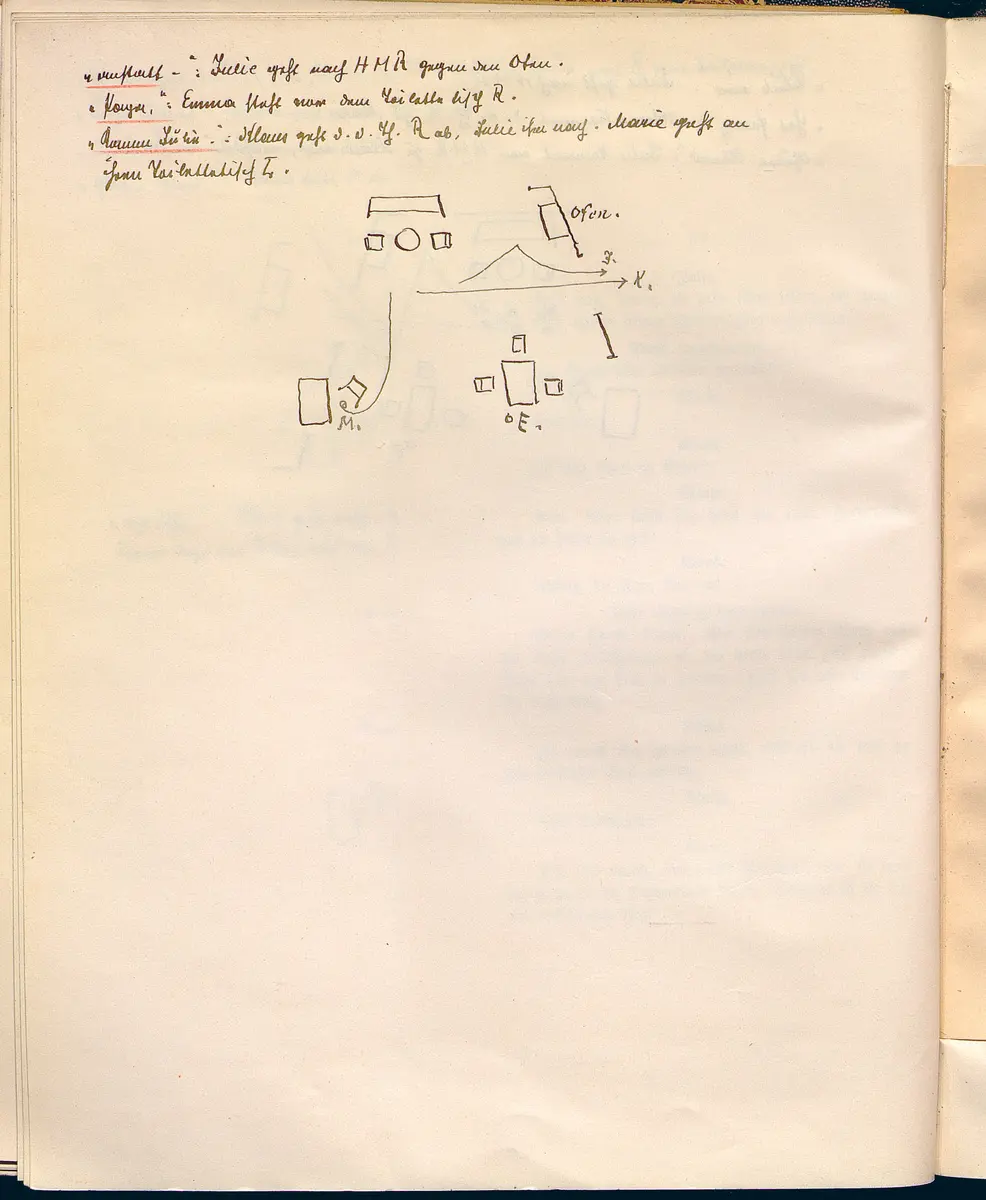 „anstatt –“: Julie geht nach H M R gegen den Ofen.
Emma steht vor dem Toilettetisch R.
„Komm Julie.“: Klaus geht d. d. Th. R ab, Julie ihm nach. Marie geht an
ihren Toilettetisch L.
Ofen.
J.
K.
M.
E.